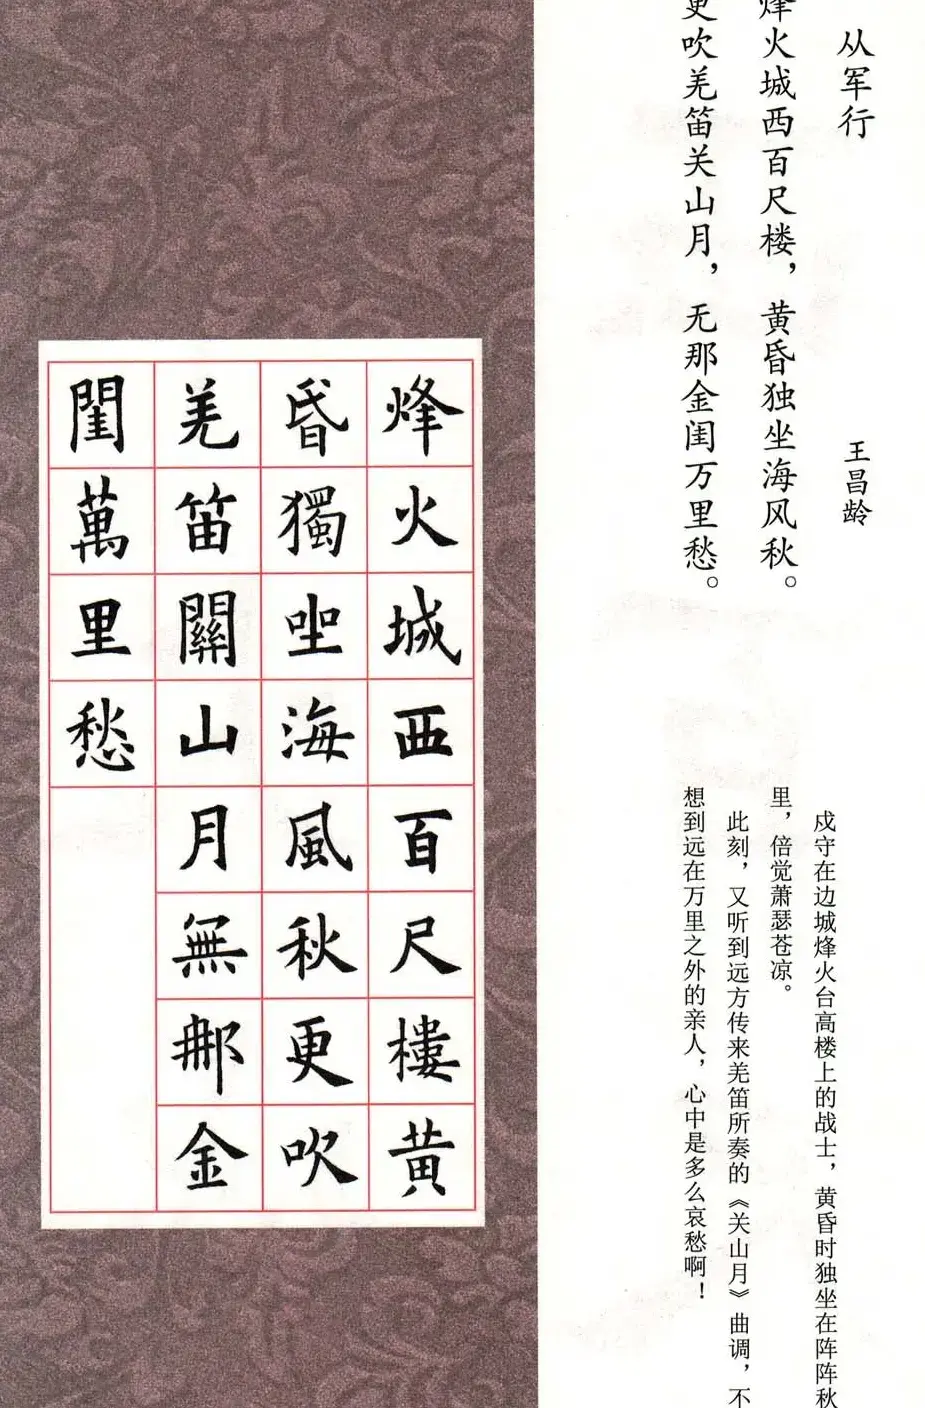 从军行
王昌龄
烽火城西百尺楼，黄昏独坐海风秋。
更吹羌笛关山月，无那金闺万里愁。
戍守在边城烽火台高楼上的战士，黄昏时独坐在阵阵秋
里，倍觉萧瑟苍凉。
此刻，又听到远方传来羌笛所奏的《关山月》曲调，不
想到远在万里之外的亲人，心中是多么哀愁啊！
烽火城西百尺樓黄
昏獨坐海風秋更吹
羌笛關山月無那金
閨萬里愁